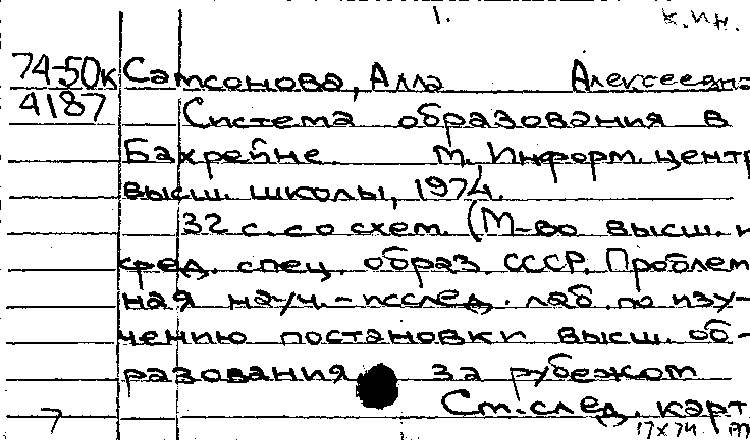 1.
к.ин.
74-50к Самсонова, Алла Алексеевна
4187 Система образования в
Бахрейне. М., Информ. центр
высш. школы, 1974.
32 с. со схем. (М-во высш. и
сред. спец. образ. СССР. Проблем-
ная науч.-исслед. лаб. по изу-
чению постановки высш. об-
разования за рубежом
См. след. карт
7
17х74